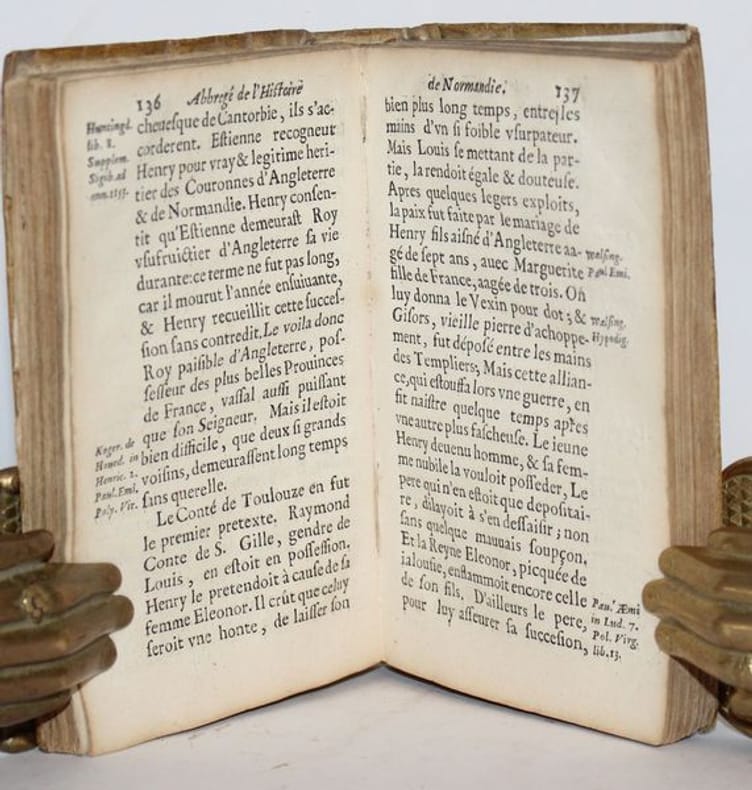 136 Abbregé de l'Histoire
Huntingd.
lib. 8.
Supplem.
Sigib. ad
ann. 1153.
cheuesque de Cantorbie, ils s'ac-
corderent. Estienne recogneut
Henry pour vray & legitime heri-
tier des Couronnes d'Angleterre
& de Normandie. Henry consen-
tit qu'Estienne demeurast Roy
vsufruictier d'Angleterre sa vie
durante: ce terme ne fut pas long,
car il mourut l'année ensuiuante,
& Henry recueillit cette succes-
sion sans contredit. Le voila donc
Roy paisible d'Angleterre, pos-
sesseur des plus belles Prouinces
de France, vassal aussi puissant
que son Seigneur. Mais il estoit
bien difficile, que deux si grands
voisins, demeurassent long temps
sans querelle.
Roger. de
Houed. in
Henric. 2.
Paul. Emi.
Poly. Vir.
Le Conté de Toulouze en fut
le premier pretexte. Raymond
Conte de S. Gille, gendre de
Louis, en estoit en possession.
Henry le pretendoit à cause de sa
femme Eleonor. Il crût que celuy
seroit vne honte, de laisser son
de Normandie. 137
bien plus long temps, entre les
mains d'vn si foible vsurpateur.
Mais Louis se mettant de la par-
tie, la rendoit égale & douteuse.
Apres quelques legers exploits,
la paix fut faite par le mariage de
Henry fils aisné d'Angleterre aa-
gé de sept ans, auec Marguerite
fille de France, aagée de trois. On
luy donna le Vexin pour dot; &
Gisors, vieille pierre d'achoppe-
ment, fut déposé entre les mains
des Templiers; Mais cette allian-
ce, qui estouffa lors vne guerre, en
fit naistre quelque temps apres
vne autre plus fascheuse. Le ieune
Henry deuenu homme, & sa fem-
me nubile la vouloit posseder, Le
pere qui n'en estoit que depositai-
re, dilayoit à s'en dessaisir; non
sans quelque mauuais soupçon.
Et la Reyne Eleonor, picquée de
ialousie, enflammoit encore celle
de son fils. D'ailleurs le pere,
pour luy asseurer sa succesion,
Walsing.
Paul Emi.
Walsing.
Hypodig.
Paul Æmi
in Lud. 7.
Pol. Virg.
lib. 13.